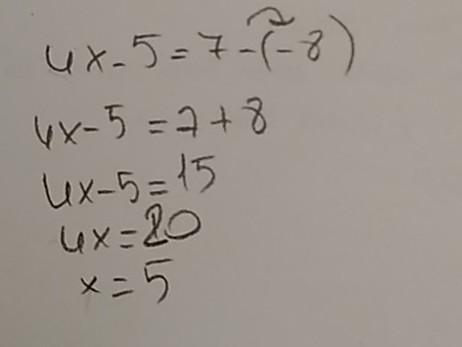 4x - 5 = 7 - (- 8)
4x - 5 = 7 + 8
4x - 5 = 15
4x = 20
x = 5